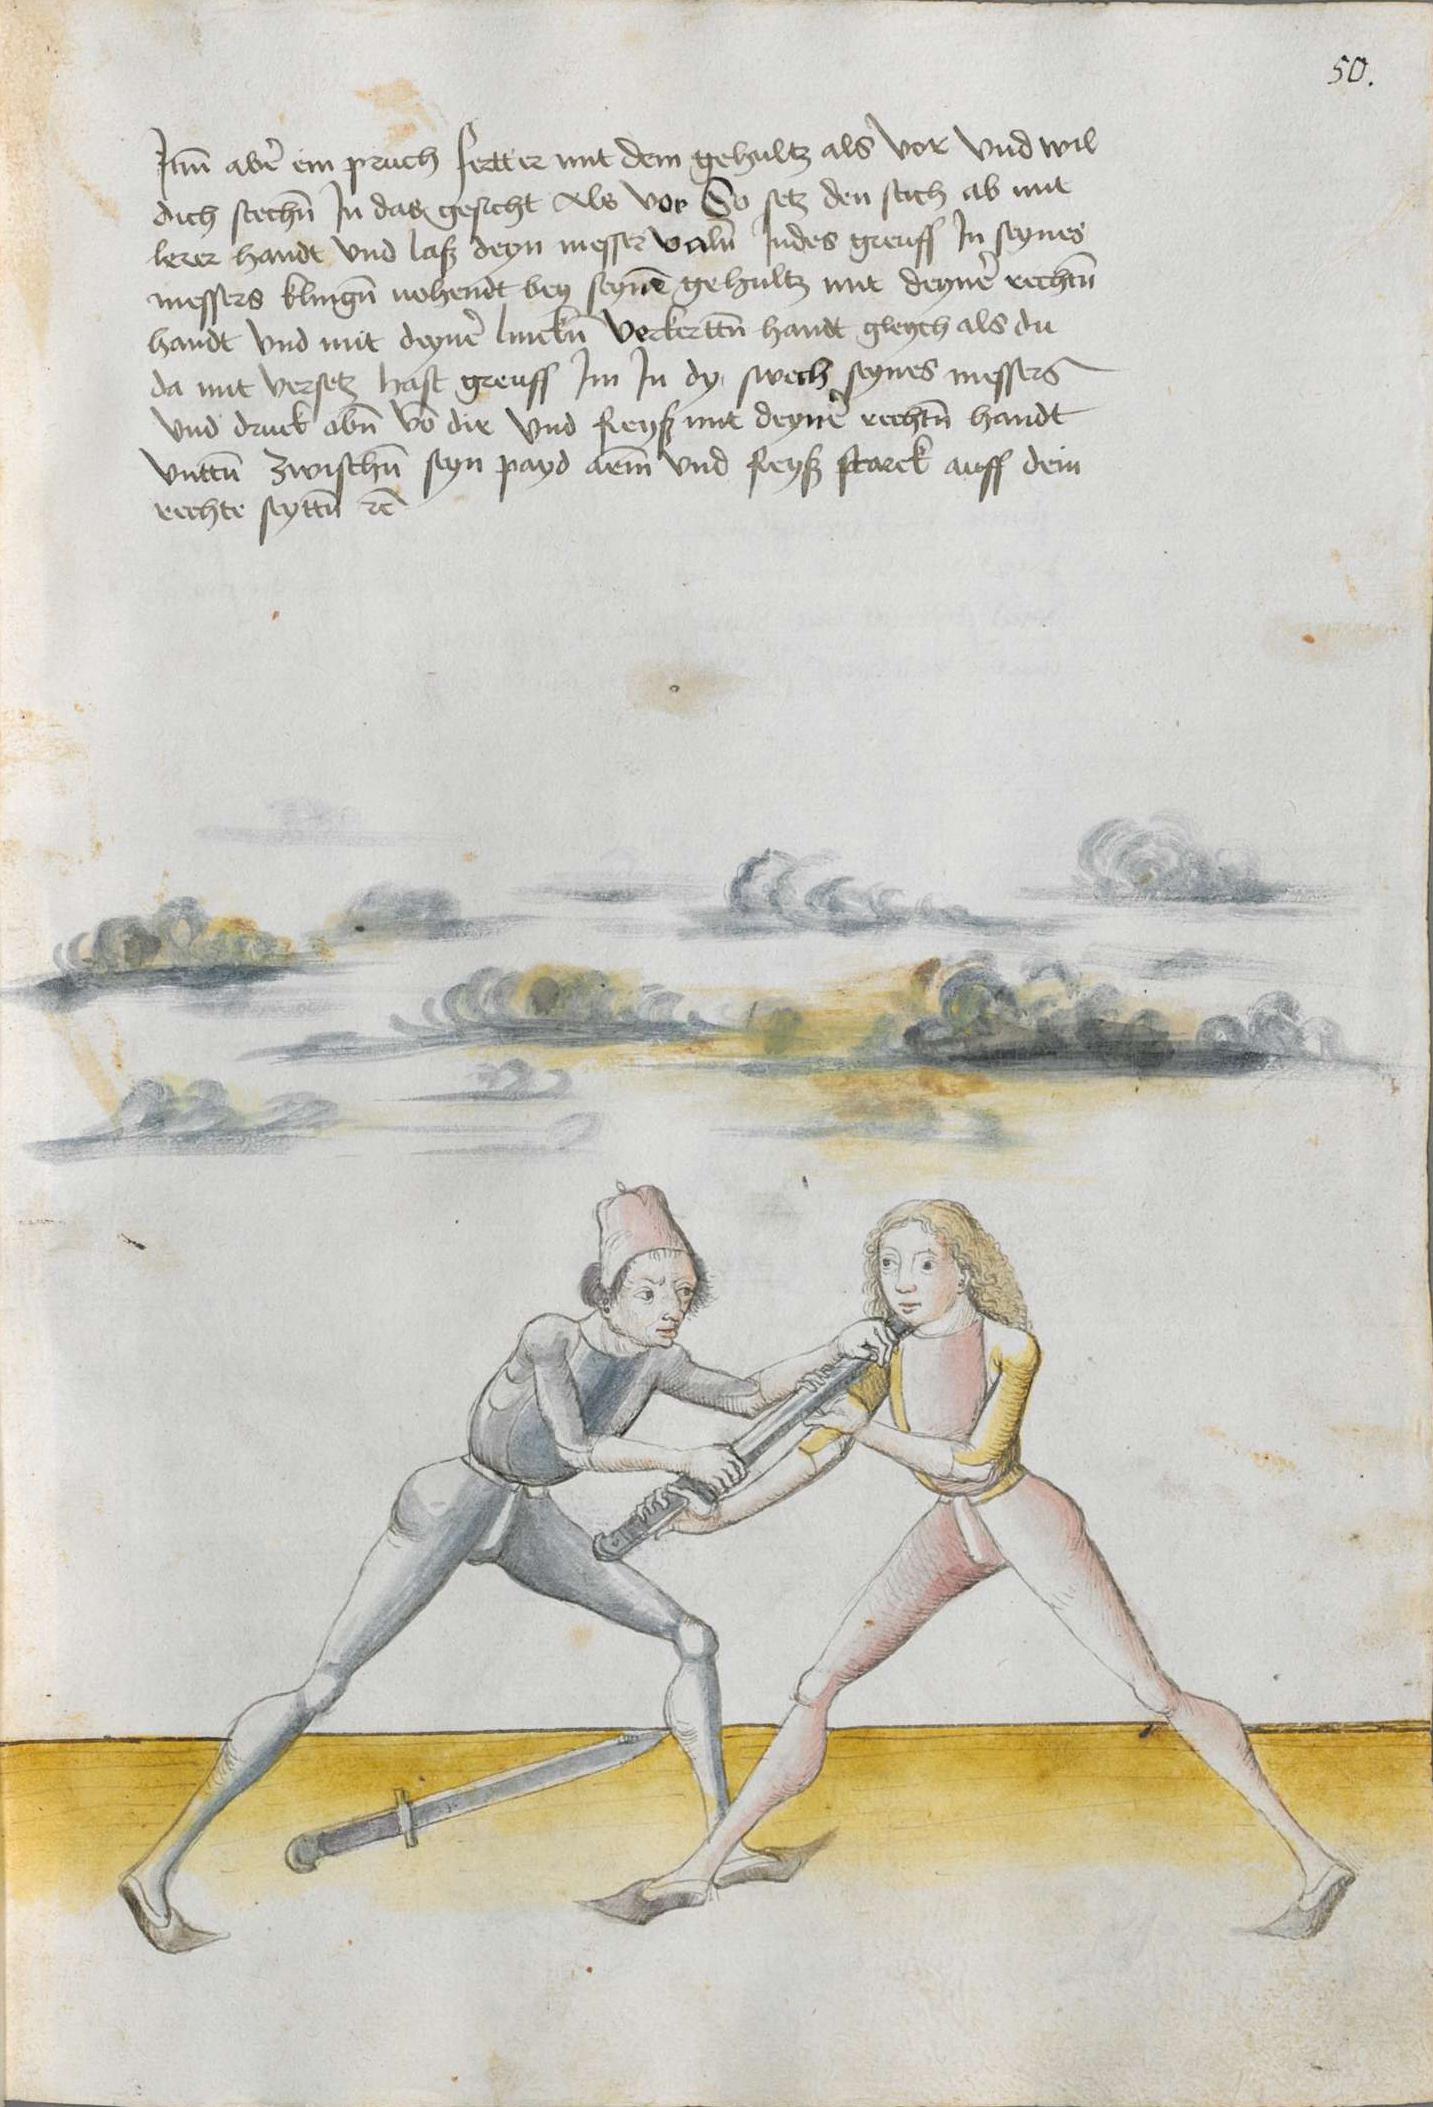 50.
Jtm̄ aber̄ ein pruch fertt er mit dem gehultz als vor vnd wil
dich stechn̄ Jn das gesicht Als vor So setz den stich ab mit
lerer handt vnd laß deyn messer valn̄ Jndes greuff Jn seynes
messers klingn̄ nohendt bey seynē gehultz mit deyner̄ rechtn̄
handt vnd mit deyner̄ linckn̄ verkerttn̄ handt gleych als du
da mit versetz hast greuff Jm Jn dy swech seynes messers
vnd druck obn̄ vō dir vnd Reyß mit deyner̄ rechtn̄ handt
vnttn̄ zwischn̄ seyn payd arm̄ vnd Reyß starck auff dein
rechte seyttn̄ rc̄